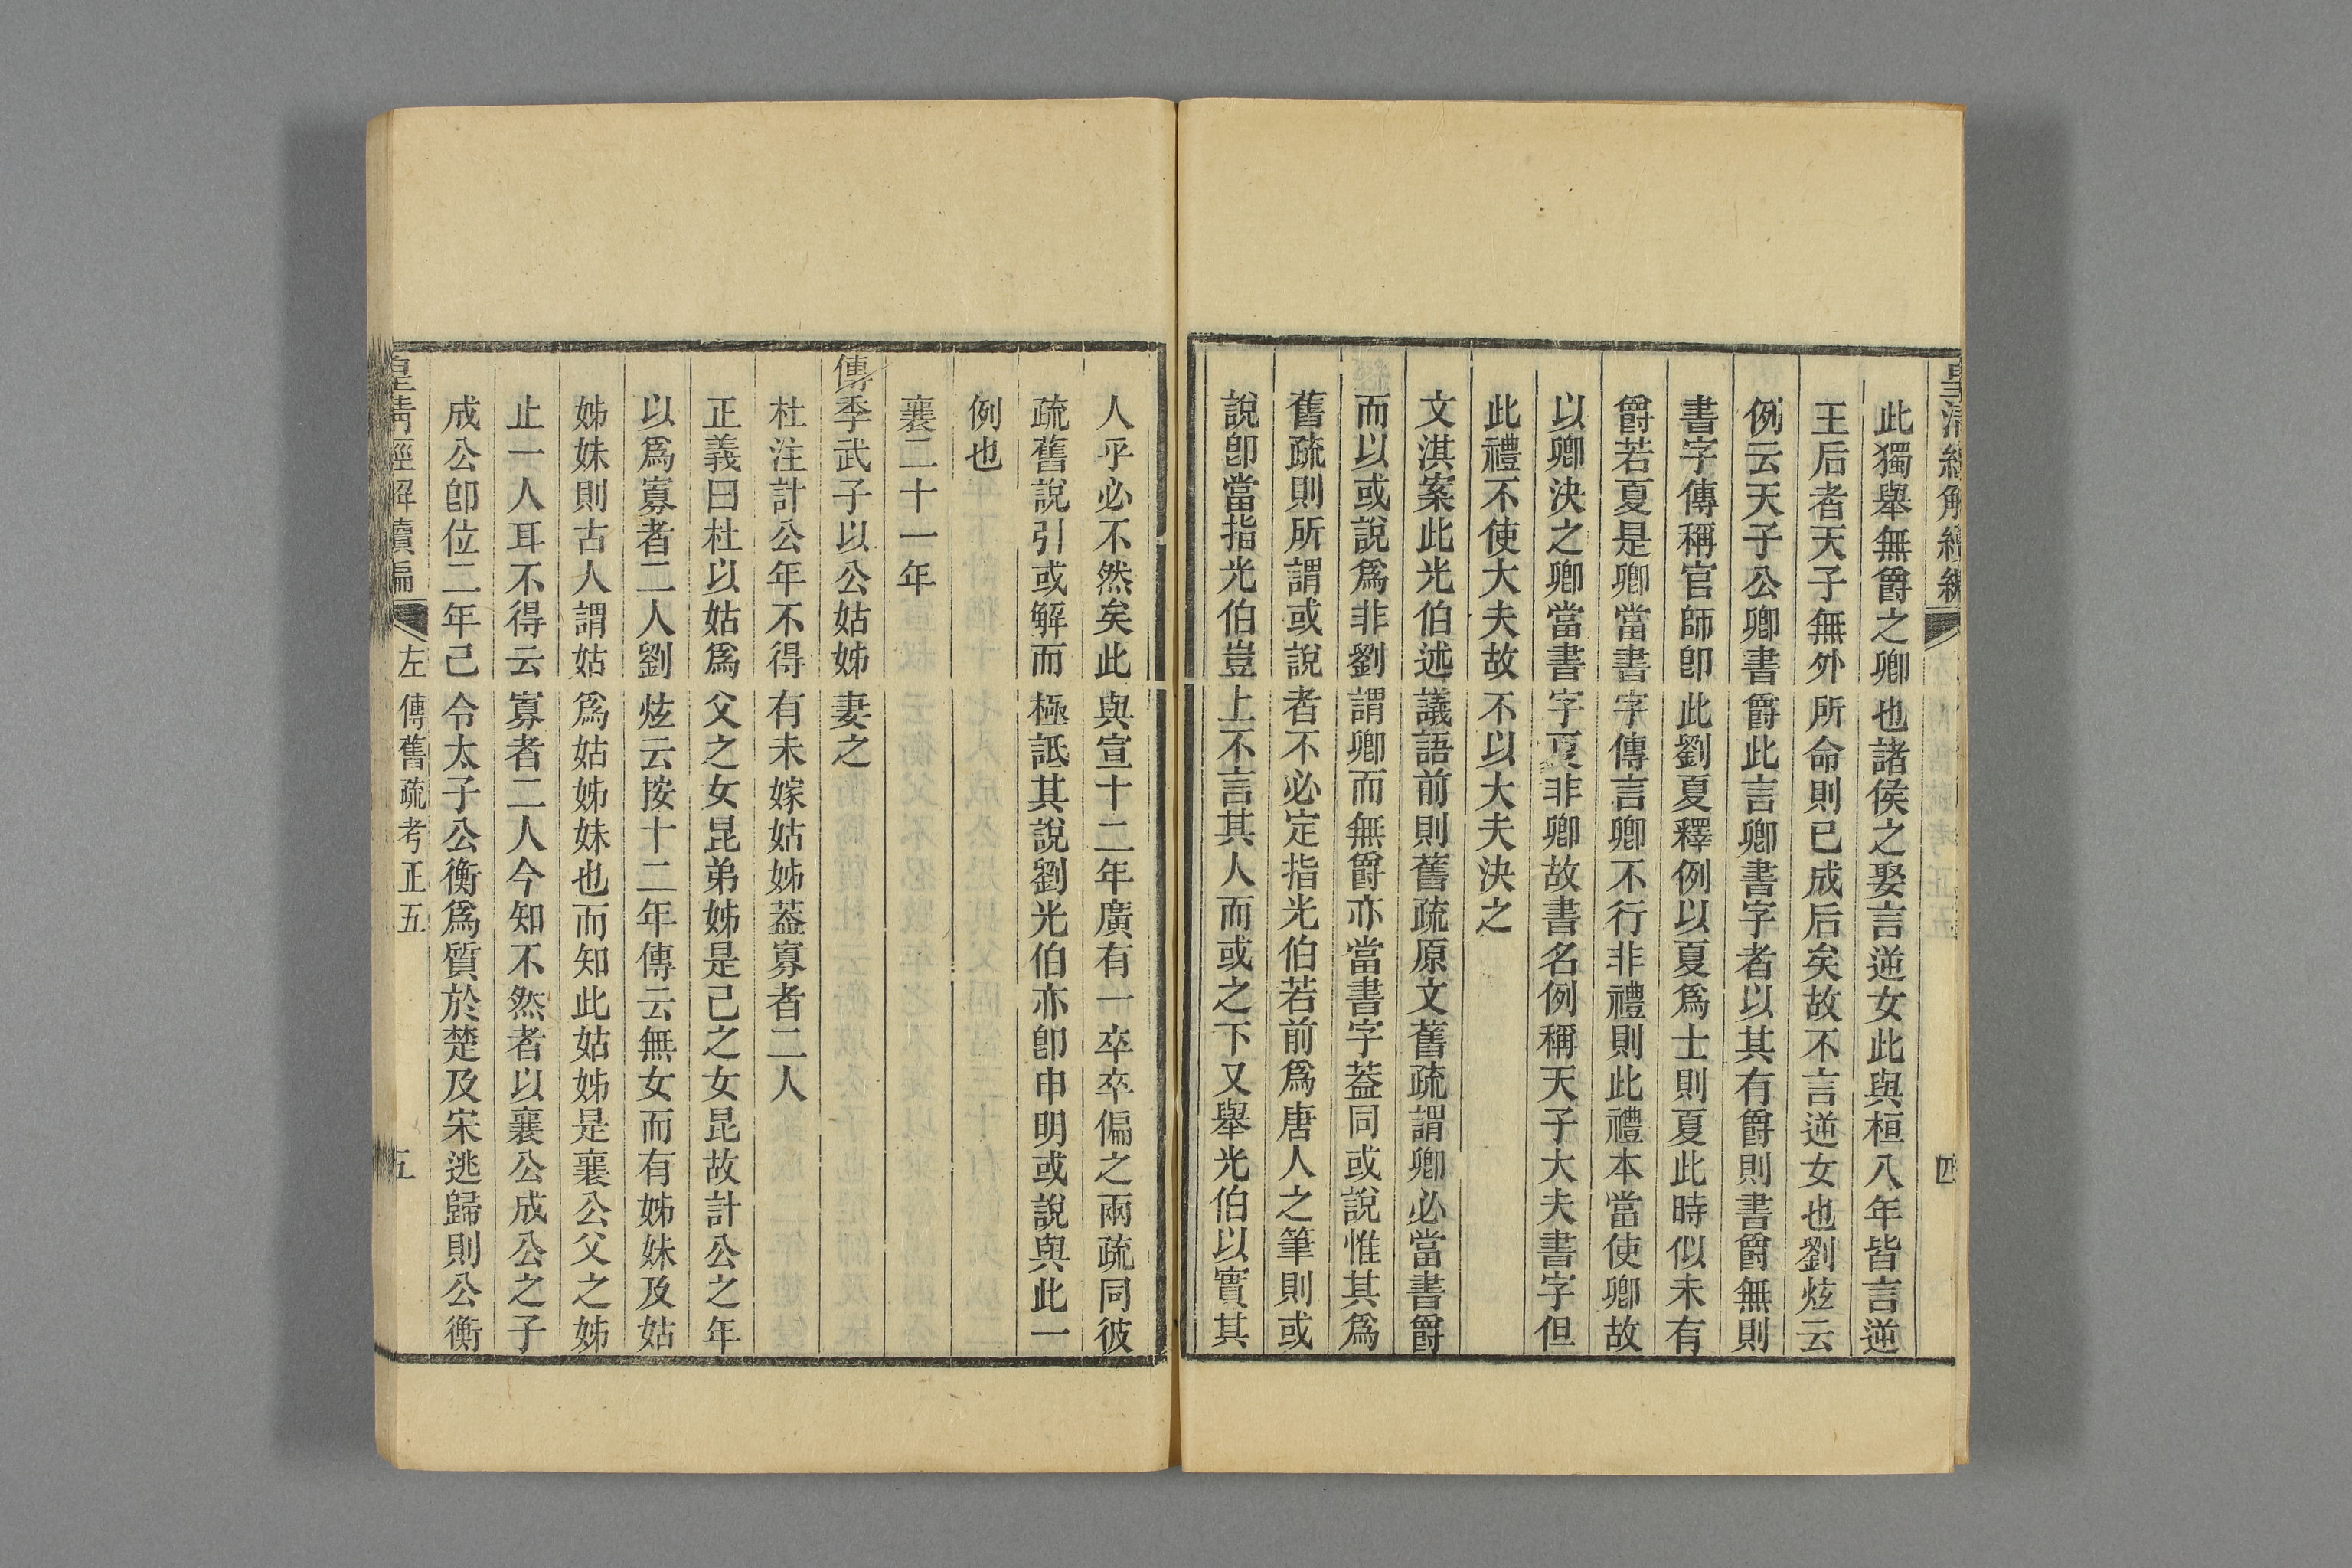 此獨舉無爵之卿也諸侯之娶言逆女此與桓八年皆言逆
王后者天子無外所命則已成后矣故不言逆女也劉炫云
例云天子公卿書爵此言卿書字者以其有爵則書爵無則
書字傳稱官師卽此劉夏釋例以夏爲士則夏此時似未有
爵若夏是卿當書字傳言卿不行非禮則此禮本當使卿故
以卿決之卿當書字夏非卿故書名例稱天子大夫書字但
此禮不使大夫故不以大夫決之
文淇案此光伯述議語前則舊疏原文舊疏謂卿必當書爵
而以或說爲非劉謂卿而無爵亦當書字葢同或說惟其爲
舊疏則所謂或說者不必定指光伯若前爲唐人之筆則或
說卽當指光伯豈上不言其人而或之下又舉光伯以實其
人乎必不然矣此與宣十二年廣有一卒卒偏之兩疏同彼
疏舊說引或解而極詆其說劉光伯亦卽申明或說與此一
例也
襄二十一年
傳季武子以公姑姊妻之
杜注計公年不得有未嫁姑姊葢寡者二人
正義曰杜以姑爲父之女昆弟姊是己之女昆故計公之年
以爲寡者二人劉炫云按十二年傳云無女而有姊妹及姑
姊妹則古人謂姑爲姑姊妹也而知此姑姊是襄公父之姊
止一人耳不得云寡者二人今知不然者以襄公成公之子
成公卽位二年己令太子公衡爲質於楚及宋逃歸則公衡
皇清經解續編 左傳舊疏考正五 五